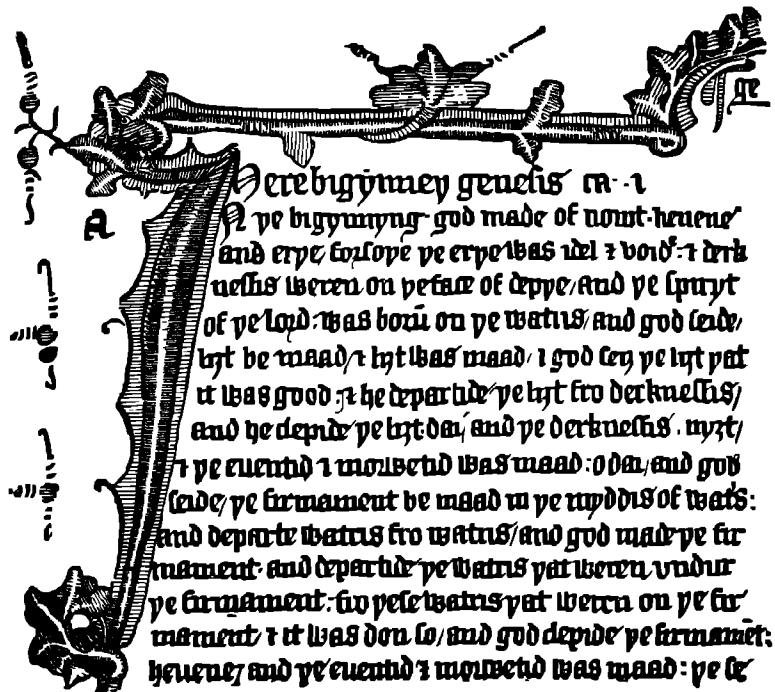 ge
Here bigynneþ genesis ca · i
A
In þe bigynnyng god made of nouȝt heuene
and erþe, forsoþe þe erþe was idel ⁊ void: ⁊ derk
nessis weren on þe face of depþe, and þe spiryt
of þe lord: was borū on þe watris, and god seide,
liȝt be maad, ⁊ liȝt was maad, ⁊ god seȝ þe liȝt þat
it was good: ⁊ he departide þe liȝt fro derknessis,
and he clepide þe liȝt dai, and þe derknessis, nyȝt,
⁊ þe euentid ⁊ morwetid was maad: o dai, and god
seide, þe firmament be maad in þe myddis of wat's:
and departe watris fro watris, and god made þe fir
mament. and departide þe watris þat weren vndur
þe firmament: fro þese watris þat weren on þe fir
mament, ⁊ it was don so, and god clepide þe firmamēt:
heuene, and þe euentid ⁊ morwetid was maad: þe se